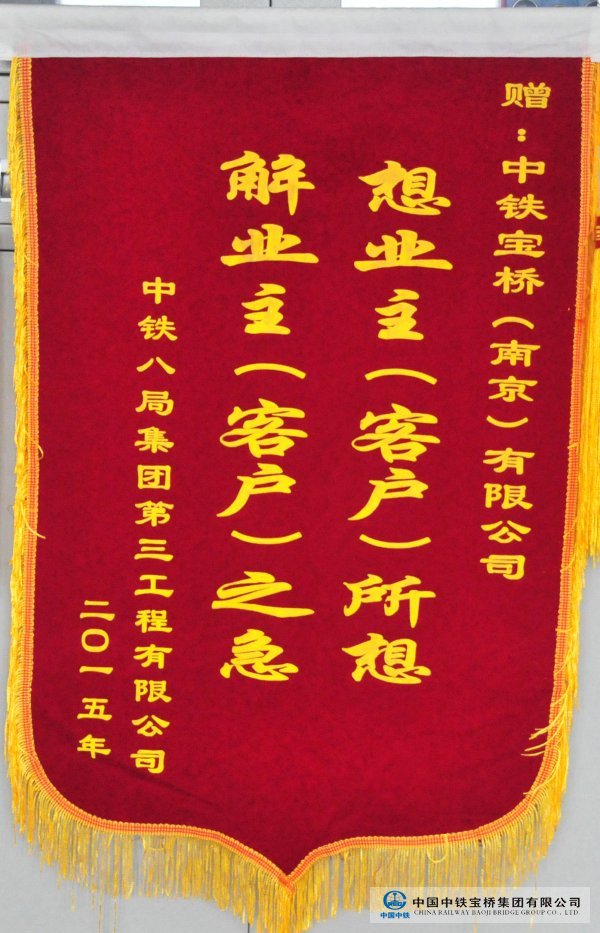 赠：中铁宝桥（南京）有限公司
想业主（客户）所想
解业主（客户）之急
中铁八局集团第三工程有限公司
二〇一五年
中国中铁
中国中铁宝桥集团有限公司
CHINA RAILWAY BAOJI BRIDGE GROUP CO., LTD